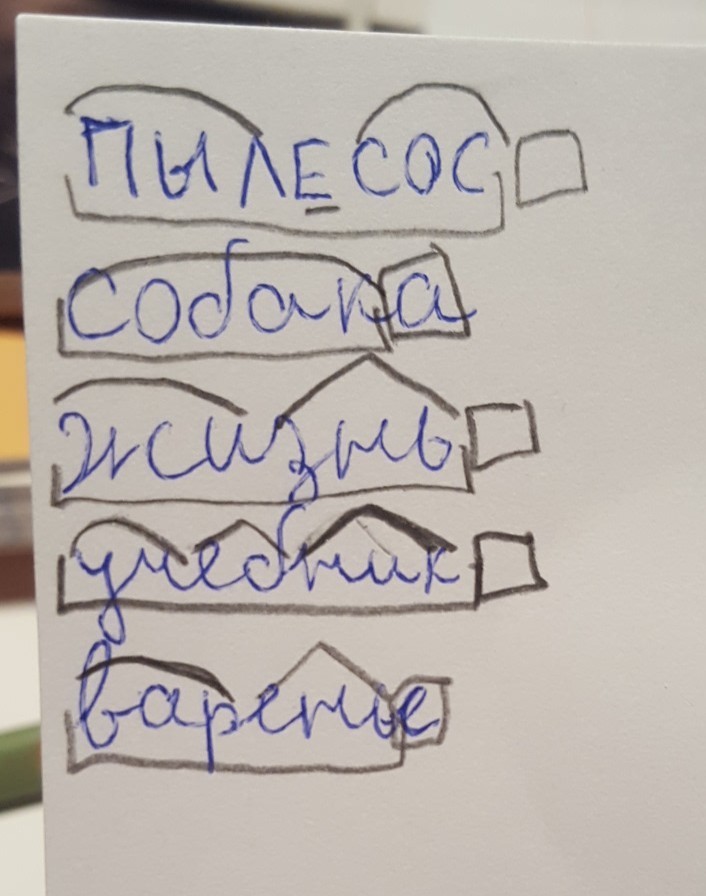 ПЫЛЕСОС
собака
жизнь
учебник
варенье